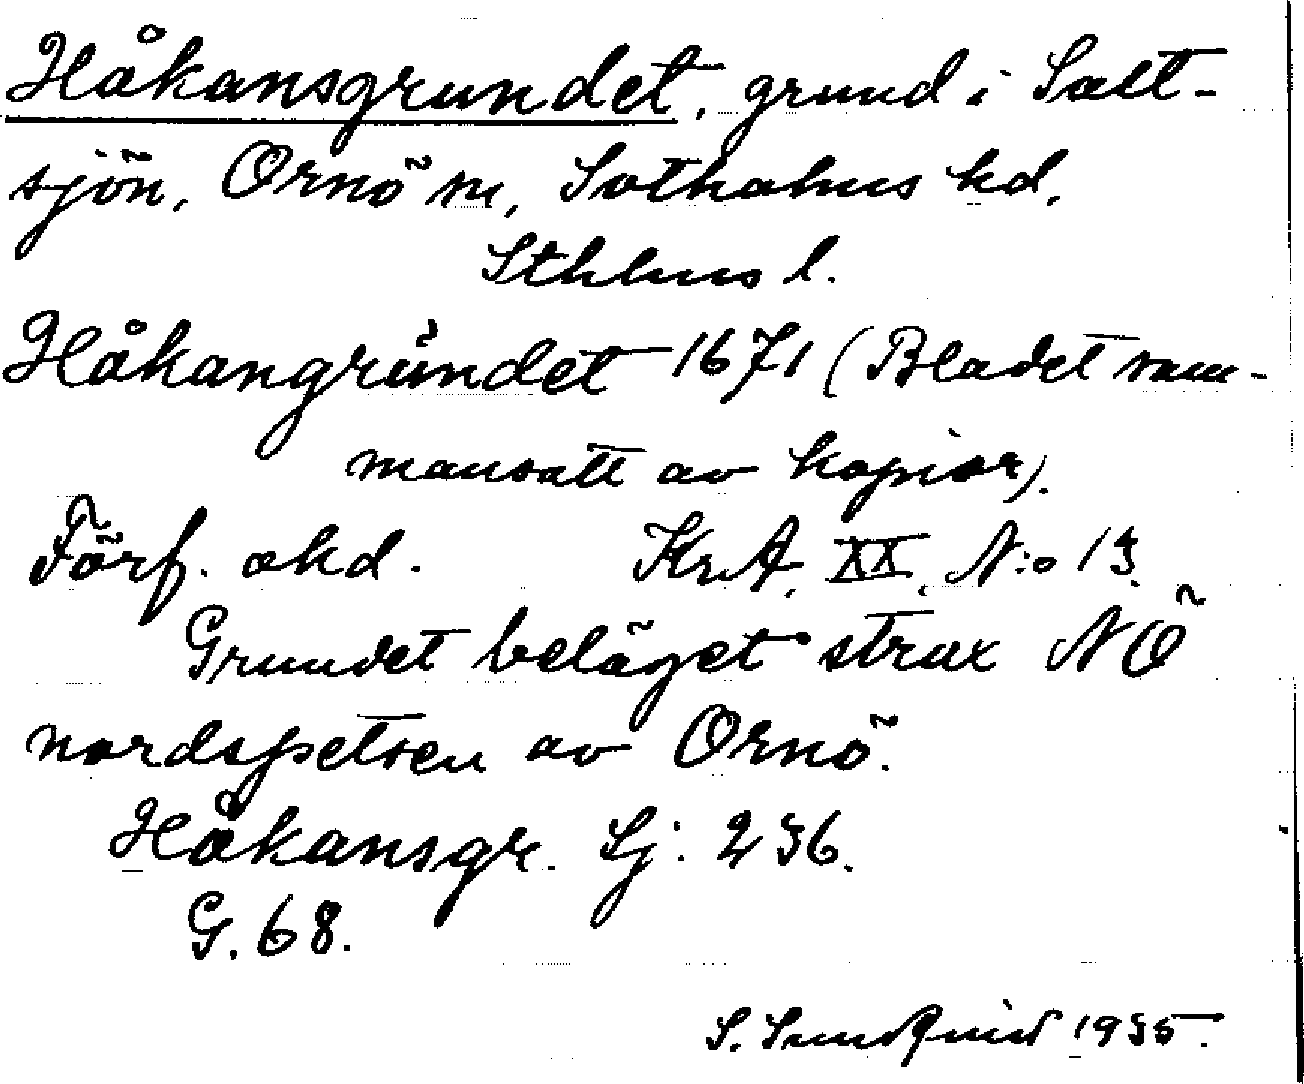 Håkansgrundet, grund i Salt-
sjön, Ornö sn, Sotholms hd,
Sthlms l.
Håkangrŭndet 1671 (Bladet sam-
mansatt av kopior).
Förf. okd. KrA, XX, N:o 13
Grundet beläget strax NÖ
nordspetsen av Ornö.
Håkansgr. Sj: 236.
G. 68.
S. Sundquist 1935.